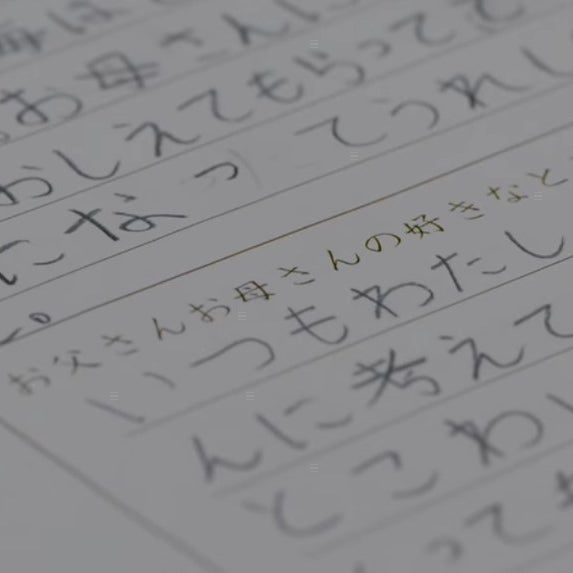 お母さん
おしえてもらって
になってうれし
お父さんお母さんの好きなと
いつもわたし
んに考えて
とこわ
って